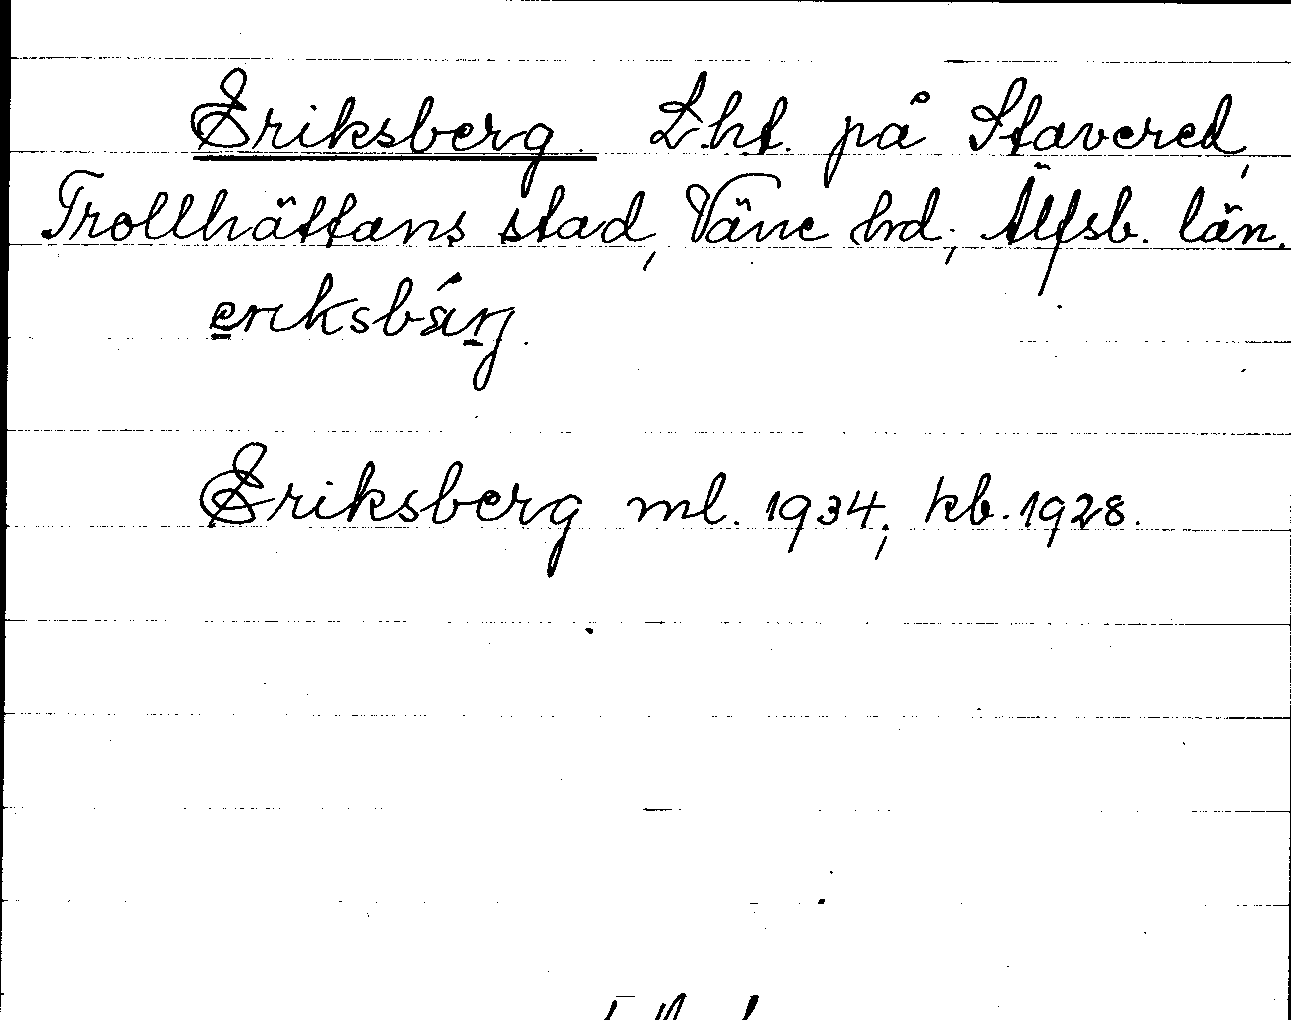 Eriksberg. Lht. på Stavered,
Trollhättans stad, Väne hd; Älfsb. län.
eriksbärj.
Eriksberg ml. 1934; kb. 1928.